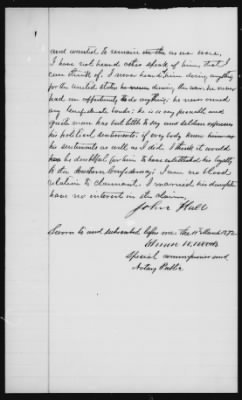 and wanted to remain in the as we were.
I have not heard others speak of him, that I
can think of. I never heard him deny anything
for the united states he never during the war. he never
had an opportunity to do anything. he never owned
any Confederate bonds; he is a very peaceable and
quiet man has but little to say and seldom expresses
his political sentiments; if every body knew him
his sentiments as well as I did. I think it would
have be doubtful for him to have established his loyalty
to the Southern Confederacy; I am no blood
relation to claimant. I married his daughter
have no interest in the claim.
John Hall
Sworn to and subscribed before me this 11 March 1872
Special commissioner and
Notary Public